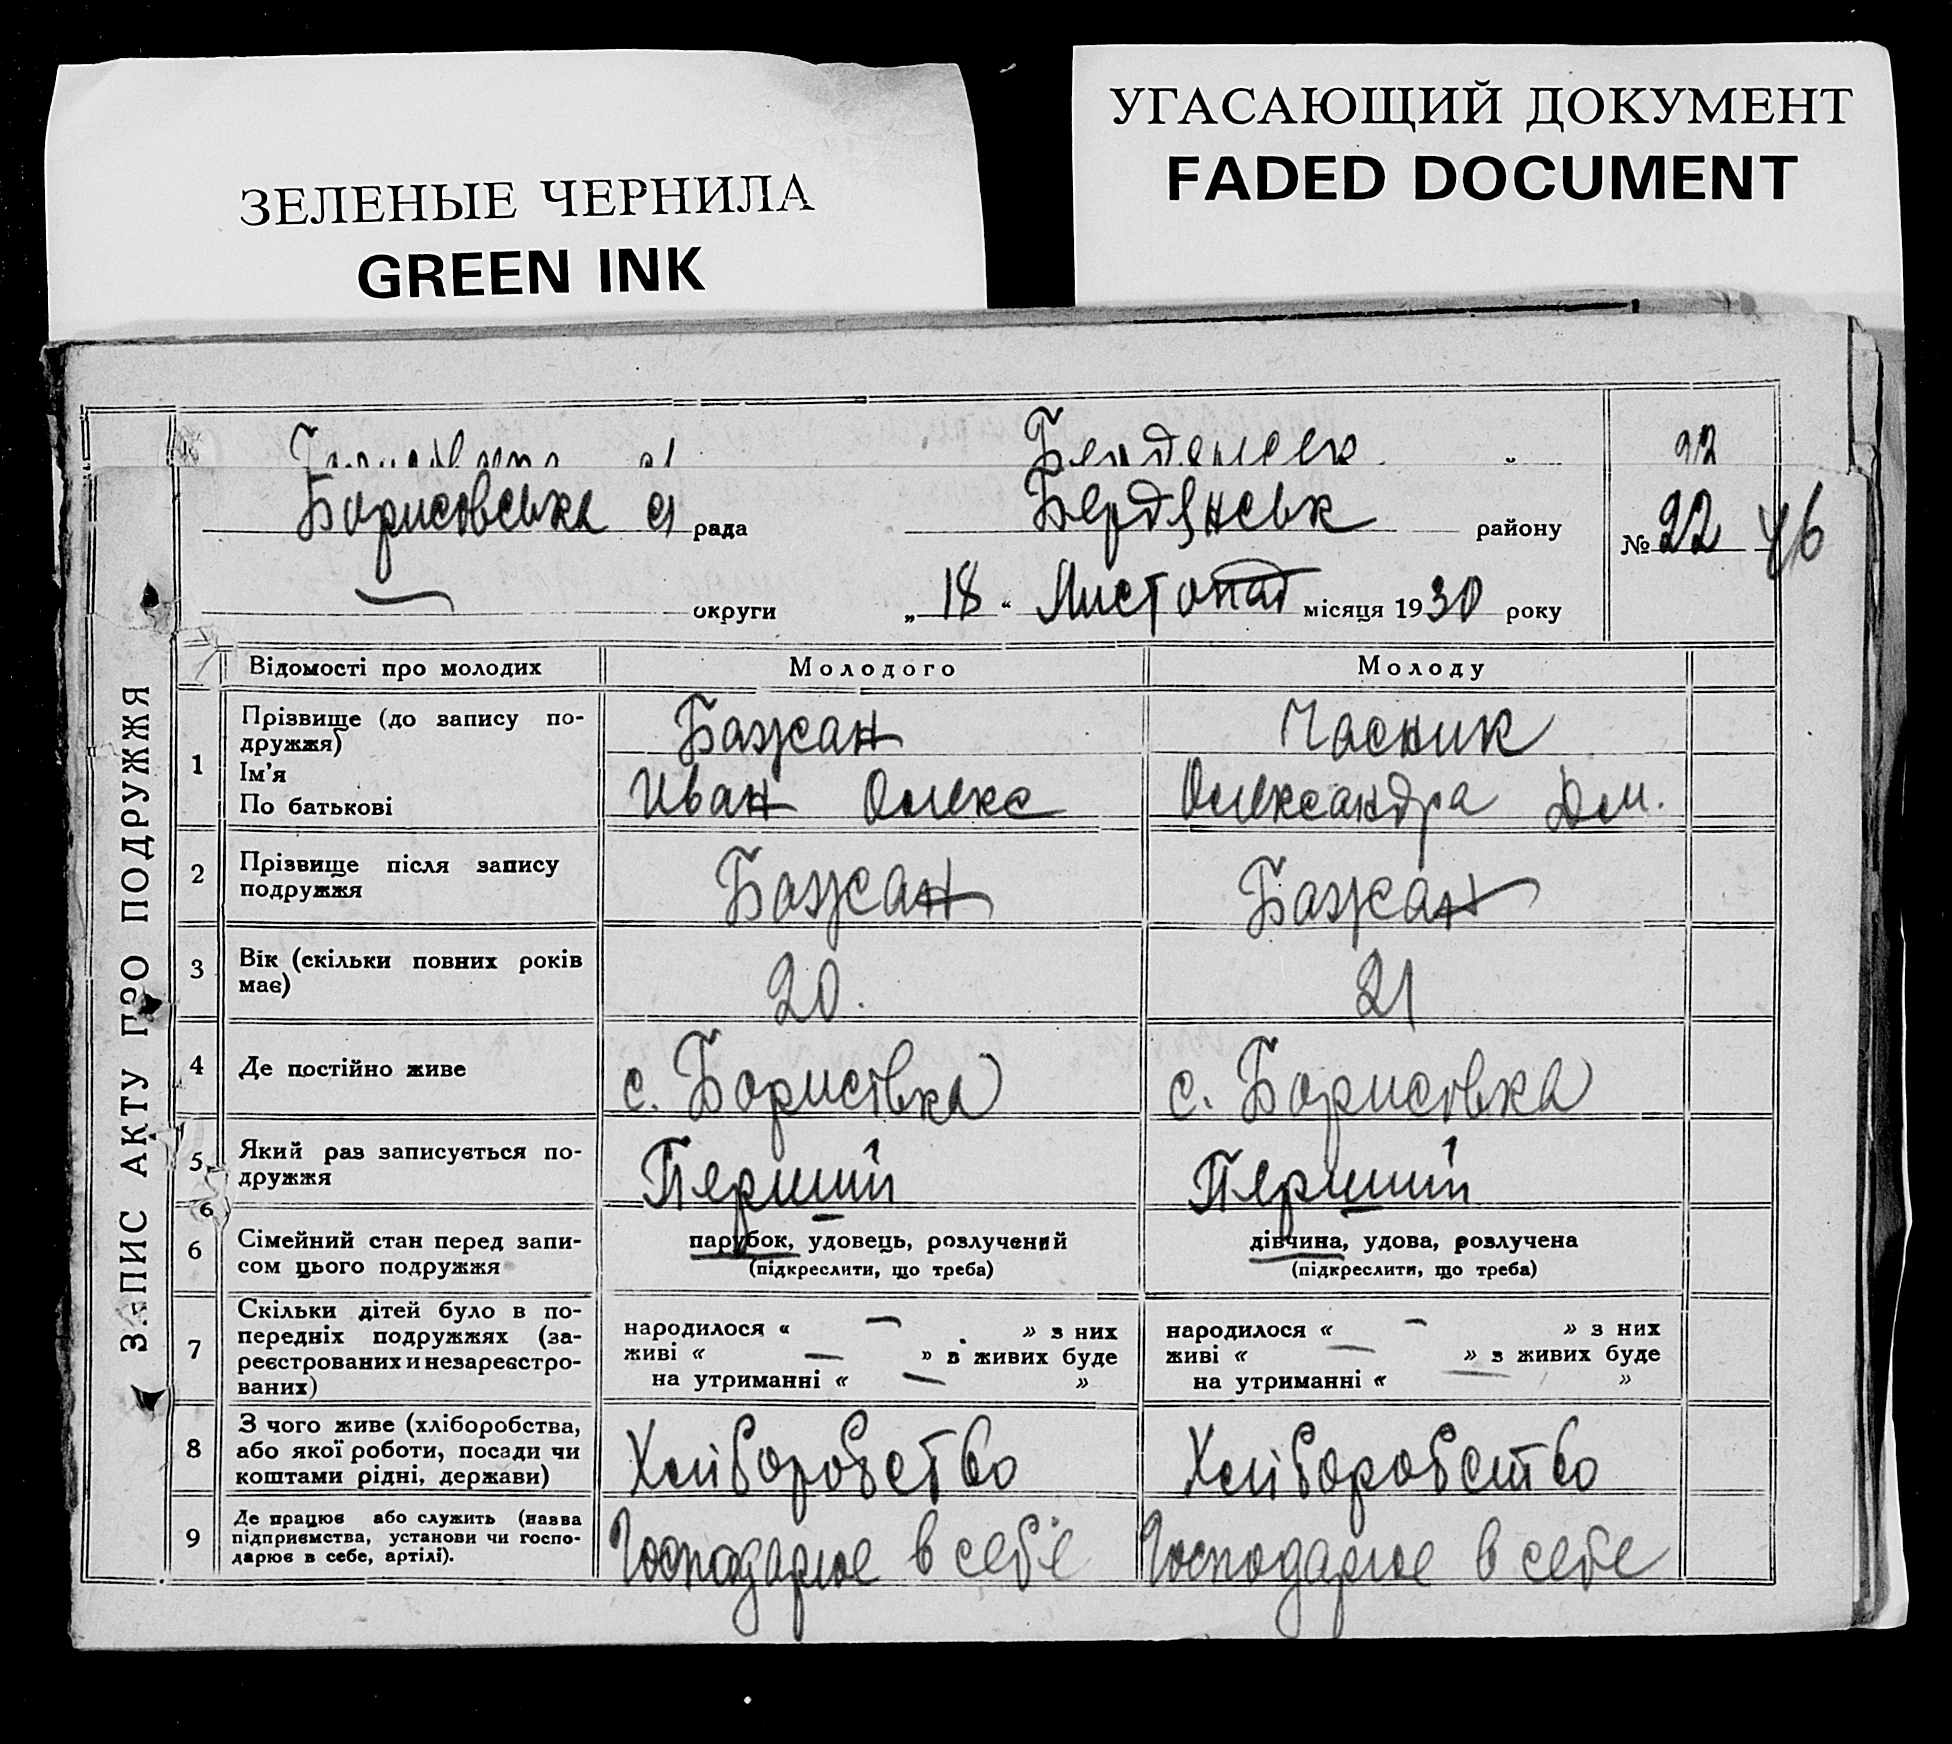 ЗЕЛЕНЫЕ ЧЕРНИЛА
GREEN INK
УГАСАЮЩИЙ ДОКУМЕНТ
FADED DOCUMENT
Бердянськ
22
Борисовська с/рада Бердянськ району № 22 46
— округи „18“ Листопад місяця 1930 року
ЗАПИС АКТУ ПРО ПОДРУЖЖЯ
Відомості про молодих Молодого Молоду
1 Прізвище (до запису по-
дружжя) Бажан Часник
Ім’я
По батькові Иван Олекс Олександра Дм.
2 Прізвище після запису
подружжя Бажан Бажан
3 Вік (скільки повних років
має) 20. 21
4 Де постійно живе с. Борисівка с. Борисовка
5 Який раз записується по-
дружжя Перший Перший
6
6 Сімейний стан перед запи-
сом цього подружжя
парубок, удовець, розлучений
(підкреслити, що треба)
дівчина, удова, розлучена
(підкреслити, що треба)
7 Скільки дітей було в по-
передніх подружжях (за-
реєстрованих и незареєстро-
ваних)
народилося « — » з них
живі « — » з живих буде
на утриманні « — »
народилося « — » з них
живі « — » з живих буде
на утриманні « — »
8 З чого живе (хліборобства,
або якої роботи, посади чи
коштами рідні, держави)
Хліборобство Хліборобство
9 Де працює або служить (назва
підприємства, установи чи госпо-
дарює в себе, артілі).
Господарює в себе Господарює в себе